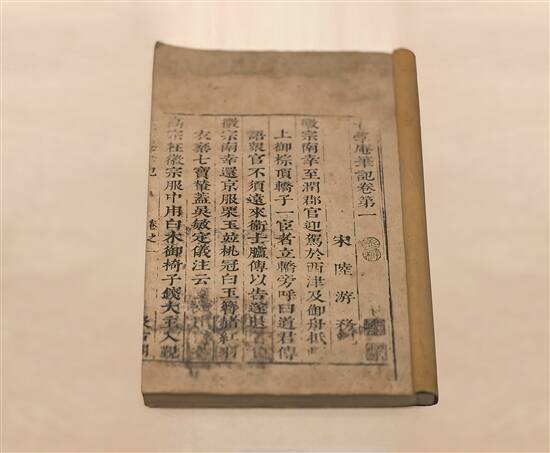 庵筆記卷第一
宋陸游務
徽宗南幸至潤郡官迎駕於西津及御舟抵
上御棕頂轎子一宦者立轎旁呼曰道君傳
語衆官不須遠來衞士臚傳以告遂退
徽宗南幸還京服栗玉並桃冠白玉簪赭紅羽
衣乘七寶輦蓋吳敏定儀注云
高宗在徽宗服中用白木御椅子錢大主入覲
記 卷之一